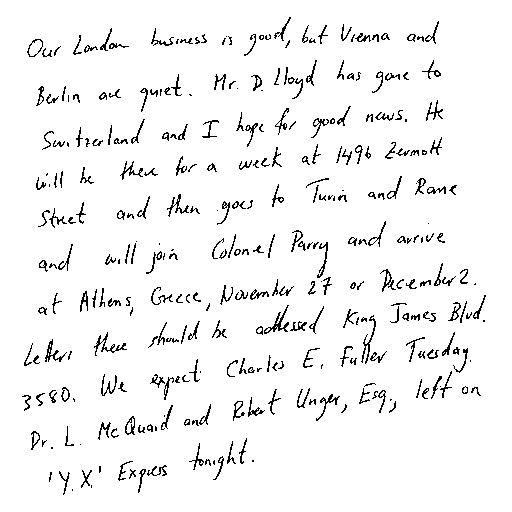 Our London business is good, but Vienna and
Berlin are quiet. Mr. D. Lloyd has gone to
Switzerland and I hope for good news. He
will be there for a week at 1496 Zermott
Street and then goes to Turin and Rome
and will join Colonel Parry and arrive
at Athens, Greece, November 27 or December 2.
Letters there should be addressed King James Blvd.
3580. We expect Charles E. Fuller Tuesday.
Dr. L. McQuaid and Robert Unger, Esq., left on
'Y.X.' Express tonight.